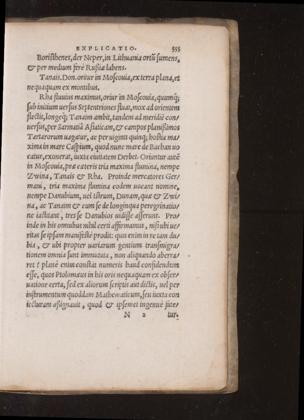 EXPLICATIO. 555
Boristhenes, der Neper, in Lithuania ortū sumens,
& per mediam ferè Russiā labens.
Tanais. Don. oritur in Moscouia, ex terra plana, et
nequaquam ex montibus.
Rha fluuius maximus, oritur in Moscouia, quamuis
sub initium versus Septentriones fluat, mox ad orientem
flectit, longeq; Tanaim ambit, tandem ad meridiē con
uersus, per Sarmatiā Asiaticam, & campos planissimos
Tartarorum uagatur, ac per uiginti quinq; hostia ma
xima in mare Caspium, quod nunc mare de Bachau uo
catur, exonerat, iuxta ciuitatem Derbet. Oriuntur autē
in Moscouia, præ cæteris tria maxima flumina, nempe
Zwina, Tanais & Rha. Proinde mercatores Ger
mani, tria maxima flumina eodem uocant nomine,
nempe Danubium, uel Istrum, Dunam, quæ & Zwi
na, ac Tanaim & cum se de longinqua peregrinatio
ne iactitant, tres se Danubios uidisse asserunt. Pro-
inde in his omnibus nihil certi affirmamus, nisi ubi ue-
ritas se ipsam manifestè prodit: quis enim in re tam du
bia, & ubi propter uariarum gentium transmigra-
tionem omnia sunt immutata, non aliquando aberra
ret? planè enim constat numeris haud confidendum
esse, quos Ptolomæus in his oris nequaquam ex obser-
uatione certa, sed ex aliorum scriptis aut dictis, uel per
instrumentum quoddam Mathematicum, seu iuxta con
iecturam assignauit, quod & ipsemet ingenuè fate-
N 2 tur.